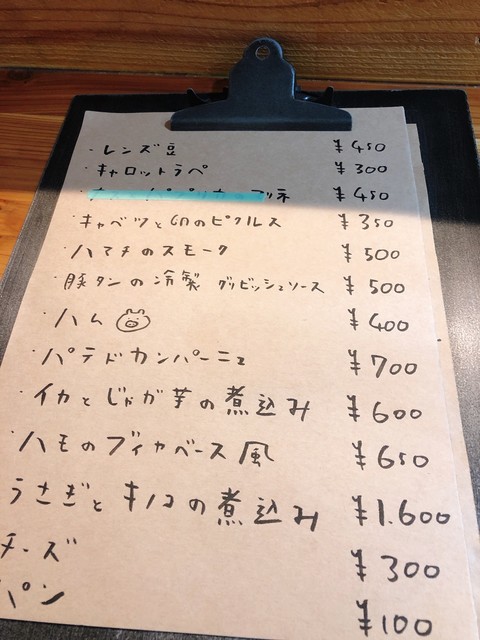 ・レンズ豆 ¥450
・キャロットラペ ¥300
マリネ ¥450
・キャベツと卵のピクルス ¥350
・ハマチのスモーク ¥500
・豚タンの冷製 グリビッシュソース ¥500
・ハム ¥400
・パテドカンパーニュ ¥700
・イカとじゃが芋の煮込み ¥600
・ハモのブイヤベース風 ¥650
うさぎとキノコの煮込み ¥1.600
チーズ ¥300
パン ¥100